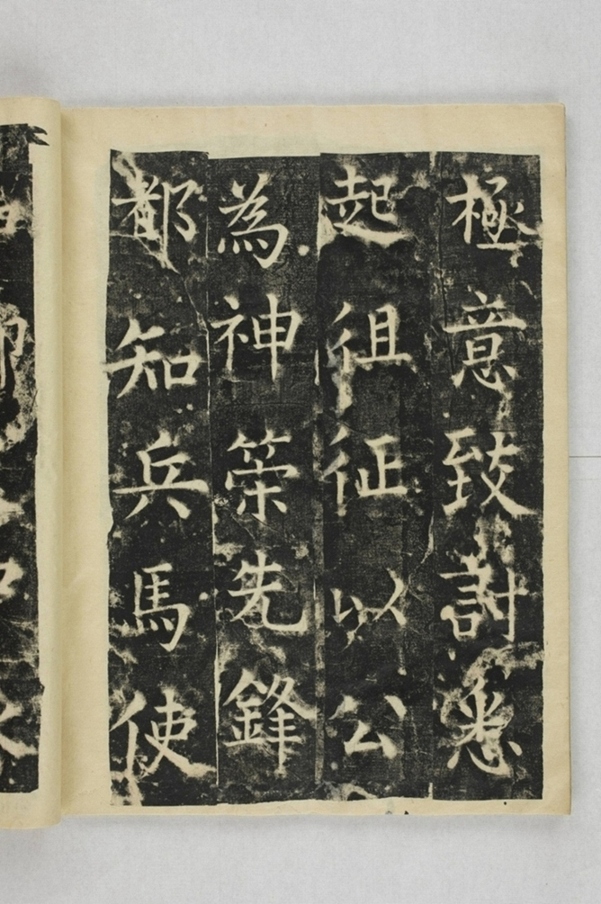 極意致討悉
起徂征以公
為神䇿先鋒
都知兵馬使